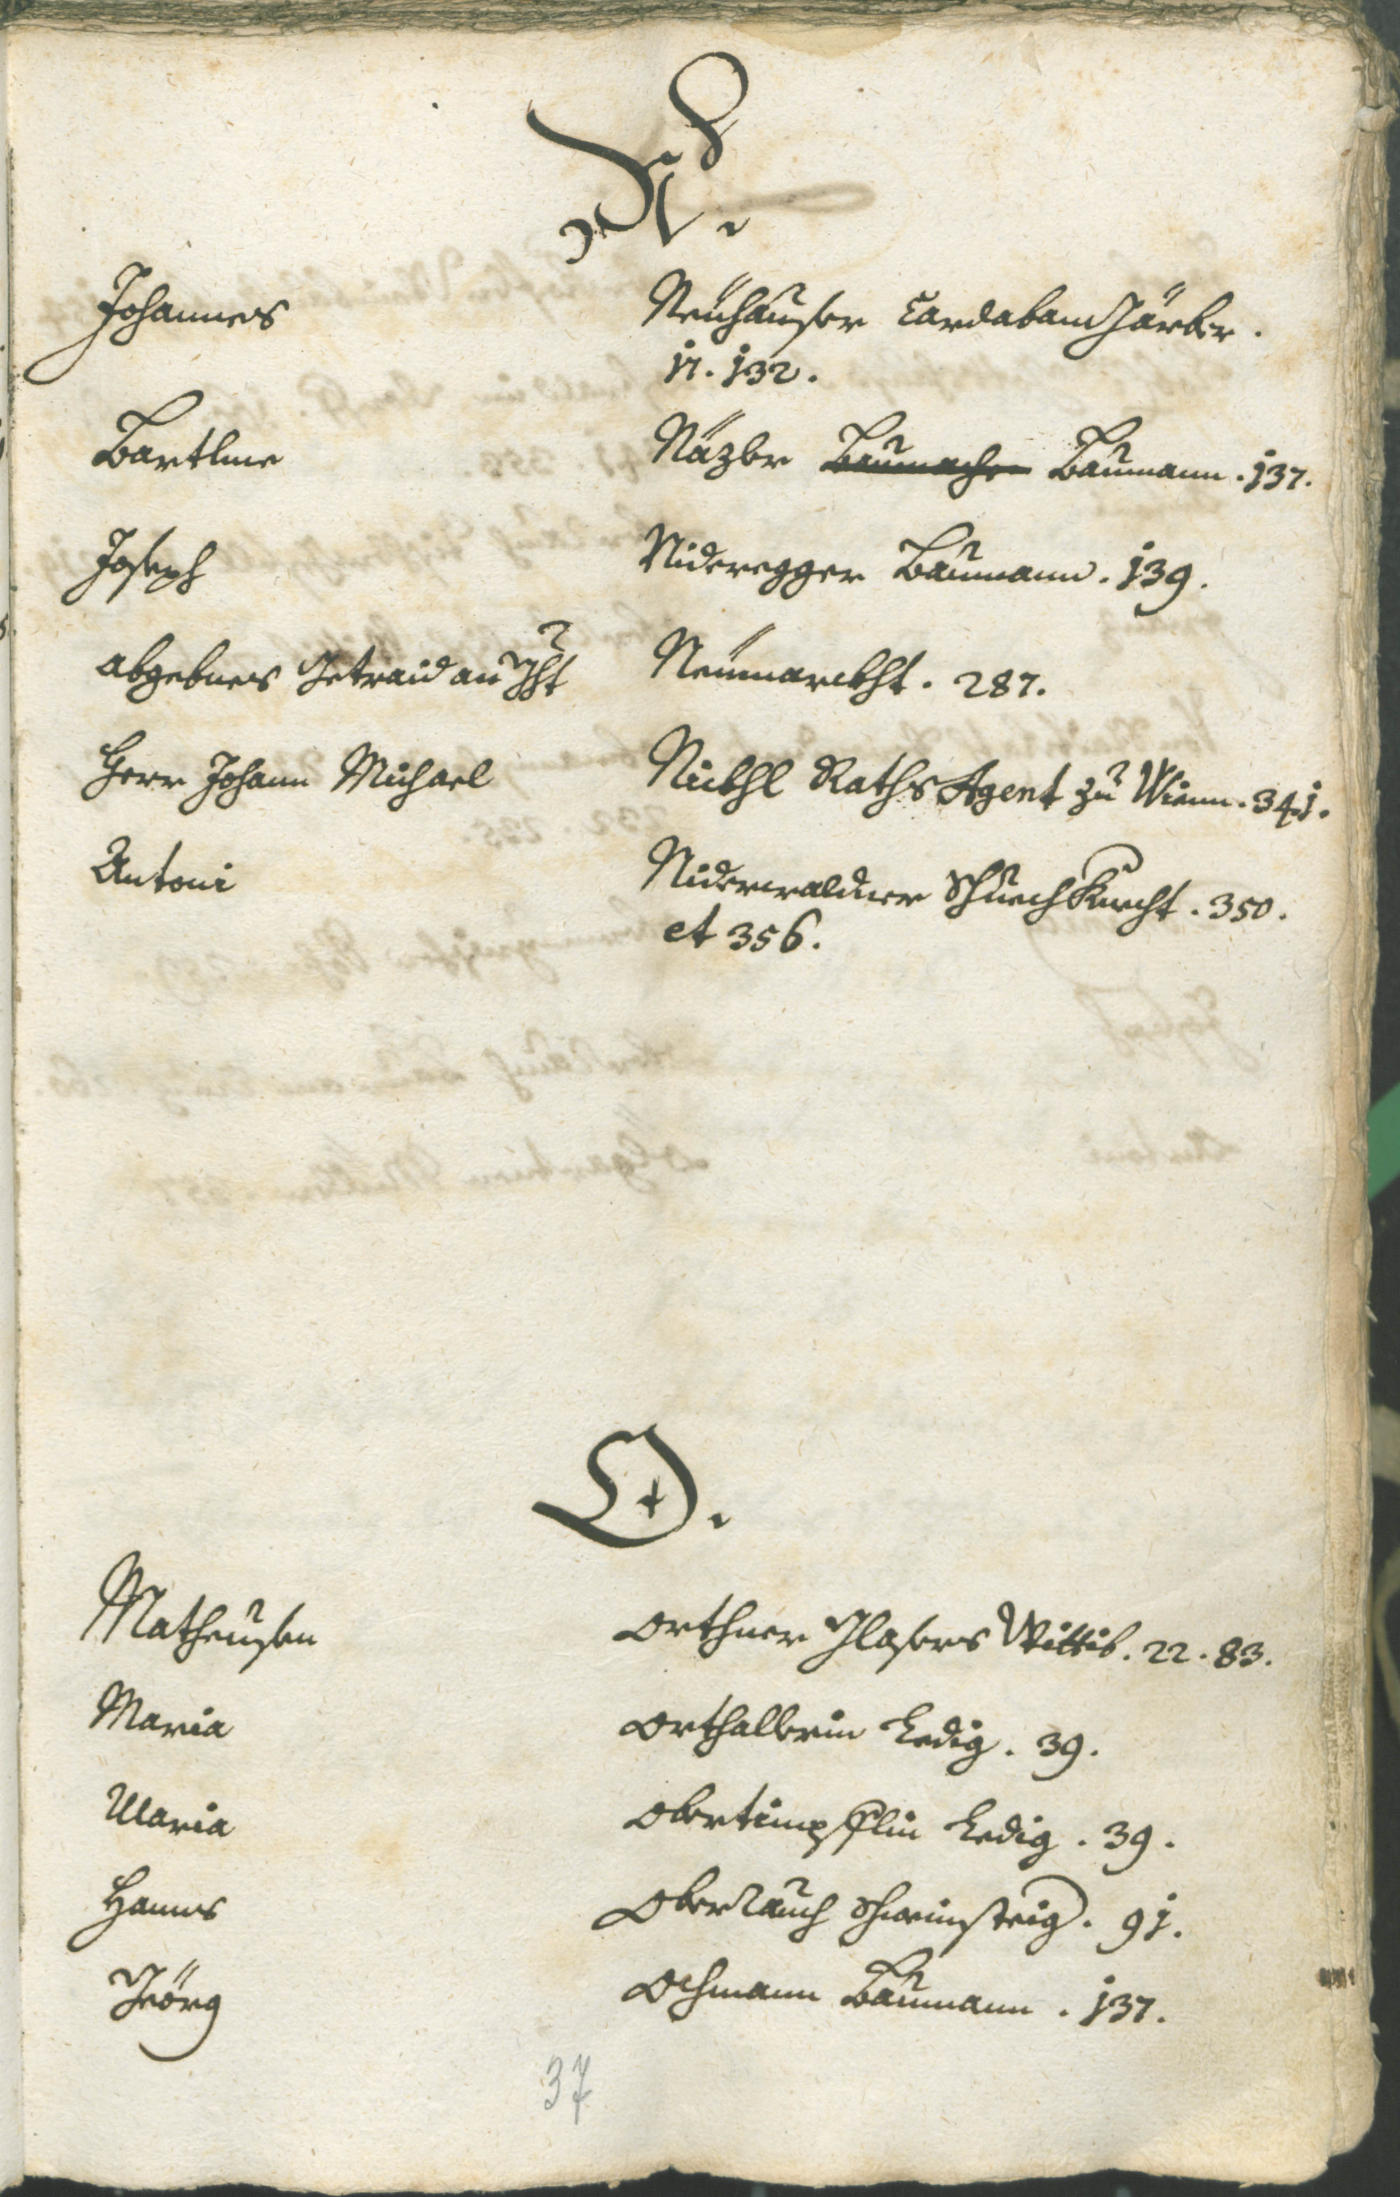 N.
Johannes Neühauser CardabanJärber.
17. 132.
Bartlme Näzler Baumacher Baumann. 137.
Joseph Nideregger Baumann. 139.
abgebnes Getraid auf Neümarckht. 287.
Herr Johann Michael Nickhl Raths Agent zu Wienn. 341.
Antoni Niderwaldner Schuechknecht. 350.
et 356.
O.
Matheusen Orthner Glasers Wittib. 22. 83.
Maria Orthallerin Ledig. 39.
Maria Obertimpflin Ledig. 39.
Hanns Oberlauch Schweinsteig. 91.
Geörg Ochmann Baumann. 137.
37